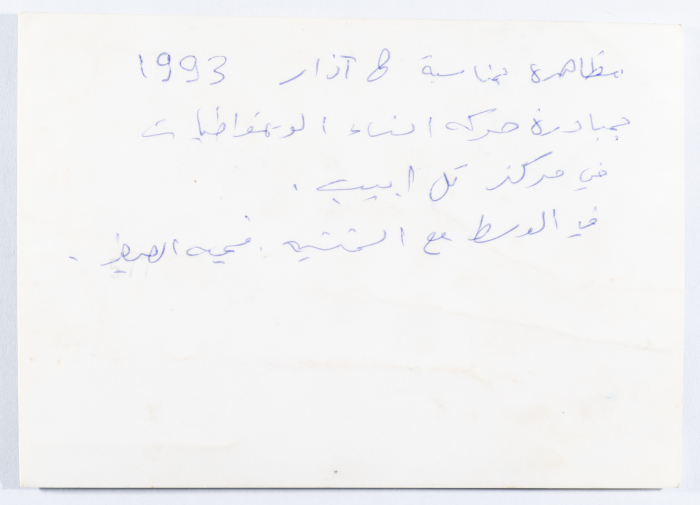 مظاهرة بمناسبة 8 آذار 1993
بمبادرة حركة النساء الديمقراطيات
في مركز تل ابيب .
في الوسط مع الشمسية . فتحيه الصغير .